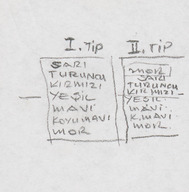 I. Tip
SARI
TURUNCU
KIRMIZI
YEŞİL
MAVİ
KOYU MAVİ
MOR
II. TİP
MOR
SARI
TURUNCU
KIRMIZI
YEŞİL
MAVİ
K.MAVİ
MOR